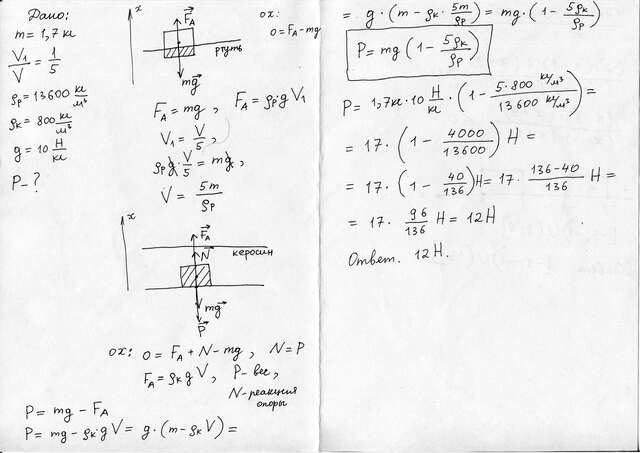 Дано:
m = 1,7 кг
V₁/V = 1/5
ρр = 13600 кг/м³
ρк = 800 кг/м³
g = 10 Н/кг
P - ?
x
F⃗A
ртуть
mg⃗
ох:
0 = FА - mg
FA = mg, FA = ρр g V₁
V₁ = V/5,
ρр g · V/5 = mg,
V = 5m/ρр
x
F⃗A
N⃗
керосин
mg⃗
P⃗
ох: 0 = FA + N - mg, N = P
FA = ρк g V, P - вес,
N - реакция
опоры
P = mg - FA
P = mg - ρк · g V = g · (m - ρк V) =
= g · (m - ρк · 5m/ρр) = mg · (1 - 5ρк/ρр)
P = mg (1 - 5ρк/ρр)
P = 1,7 кг · 10 Н/кг · (1 - 5·800 кг/м³ / 13600 кг/м³) =
= 17 · (1 - 4000/13600) Н =
= 17 · (1 - 40/136) Н = 17 · 136-40/136 Н =
= 17 · 96/136 Н = 12 Н
Ответ. 12 Н.